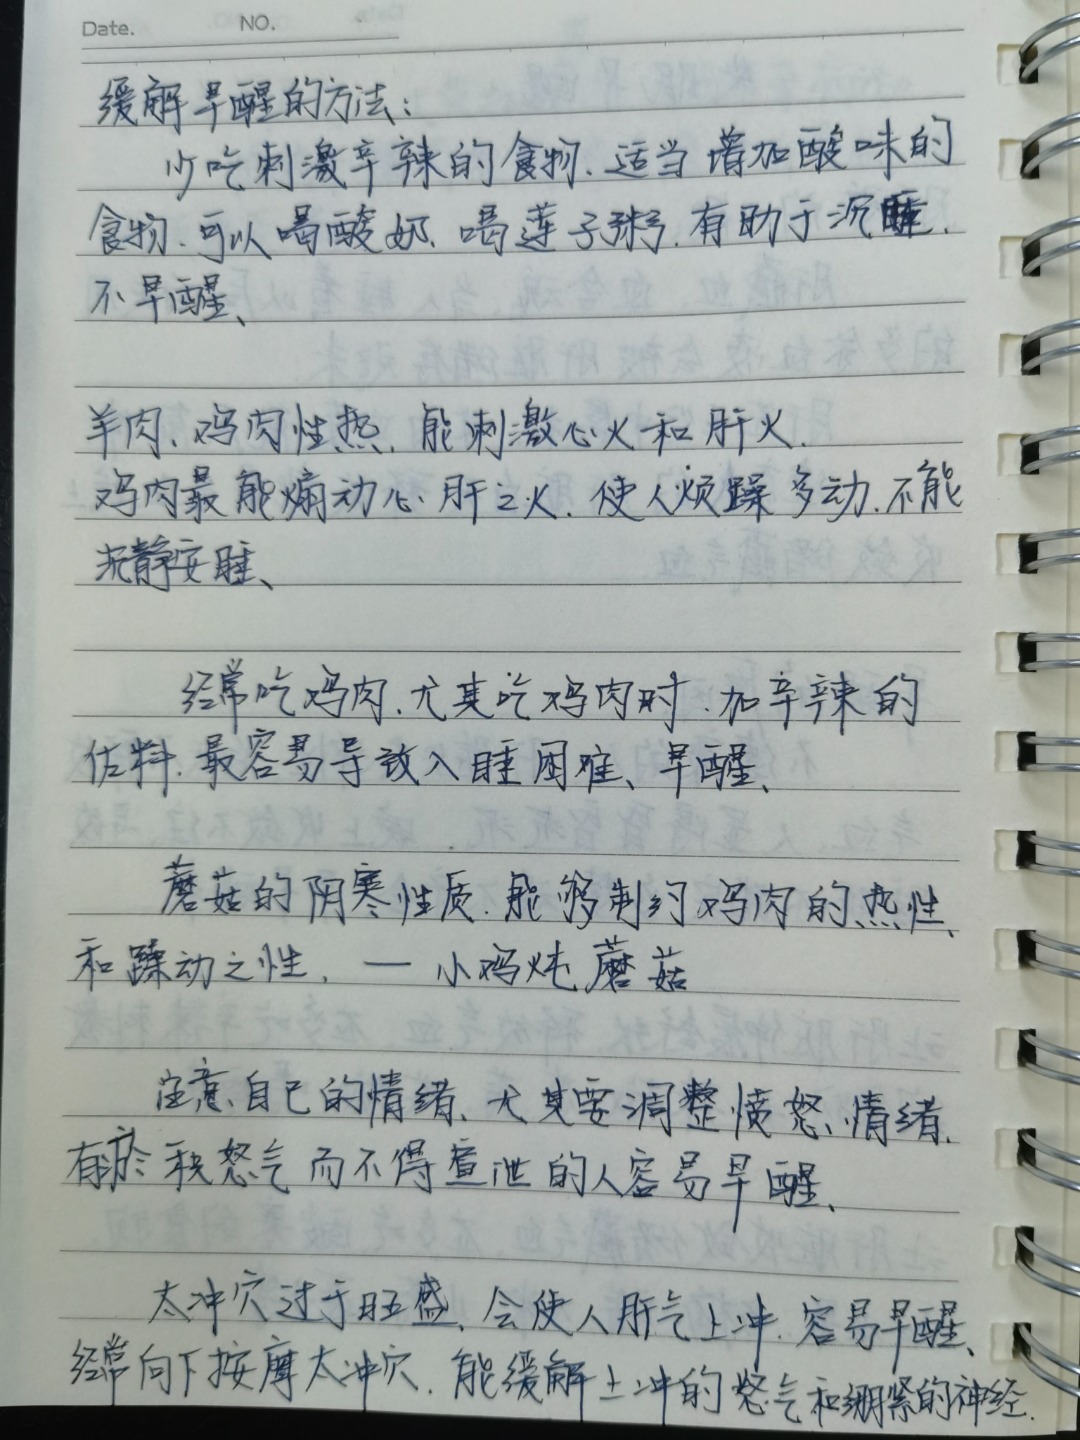 Date.    NO.
缓解早醒的方法：
少吃刺激辛辣的食物、适当增加酸味的
食物、可以喝酸奶、喝莲子粥、有助于沉睡、
不早醒、
羊肉、鸡肉性热、能刺激心火和肝火、
鸡肉最能煽动心肝之火、使人烦躁多动、不能
沉静安睡、
经常吃鸡肉、尤其吃鸡肉时、加辛辣的
佐料、最容易导致入睡困难、早醒、
蘑菇的阴寒性质、能够制约鸡肉的热性、
和躁动之性、一 小鸡炖蘑菇
注意自己的情绪、尤其要调整愤怒、情绪、
有瘀积怒气而不得宣泄的人容易早醒、
太冲穴过于旺盛、会使人肝气上冲、容易早醒、
经常向下按摩太冲穴、能缓解上冲的怒气和绷紧的神经、